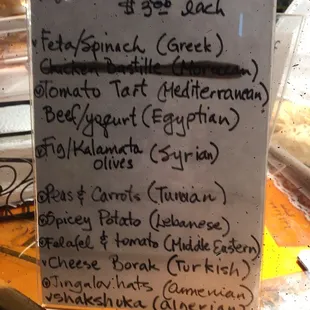 $3.00 each
Feta/Spinach (Greek)
Chicken Bastille (Moroccan)
Tomato Tart (Mediterranean)
Beef/yogurt (Egyptian)
Fig/Kalamata (Syrian)
olives
Peas & Carrots
Spicey Potato (Lebanese)
Falafel & tomato (Middle Eastern)
v Cheese Borak (Turkish)
Jingalov.hats (armenian)
v shakshuka (algerian)